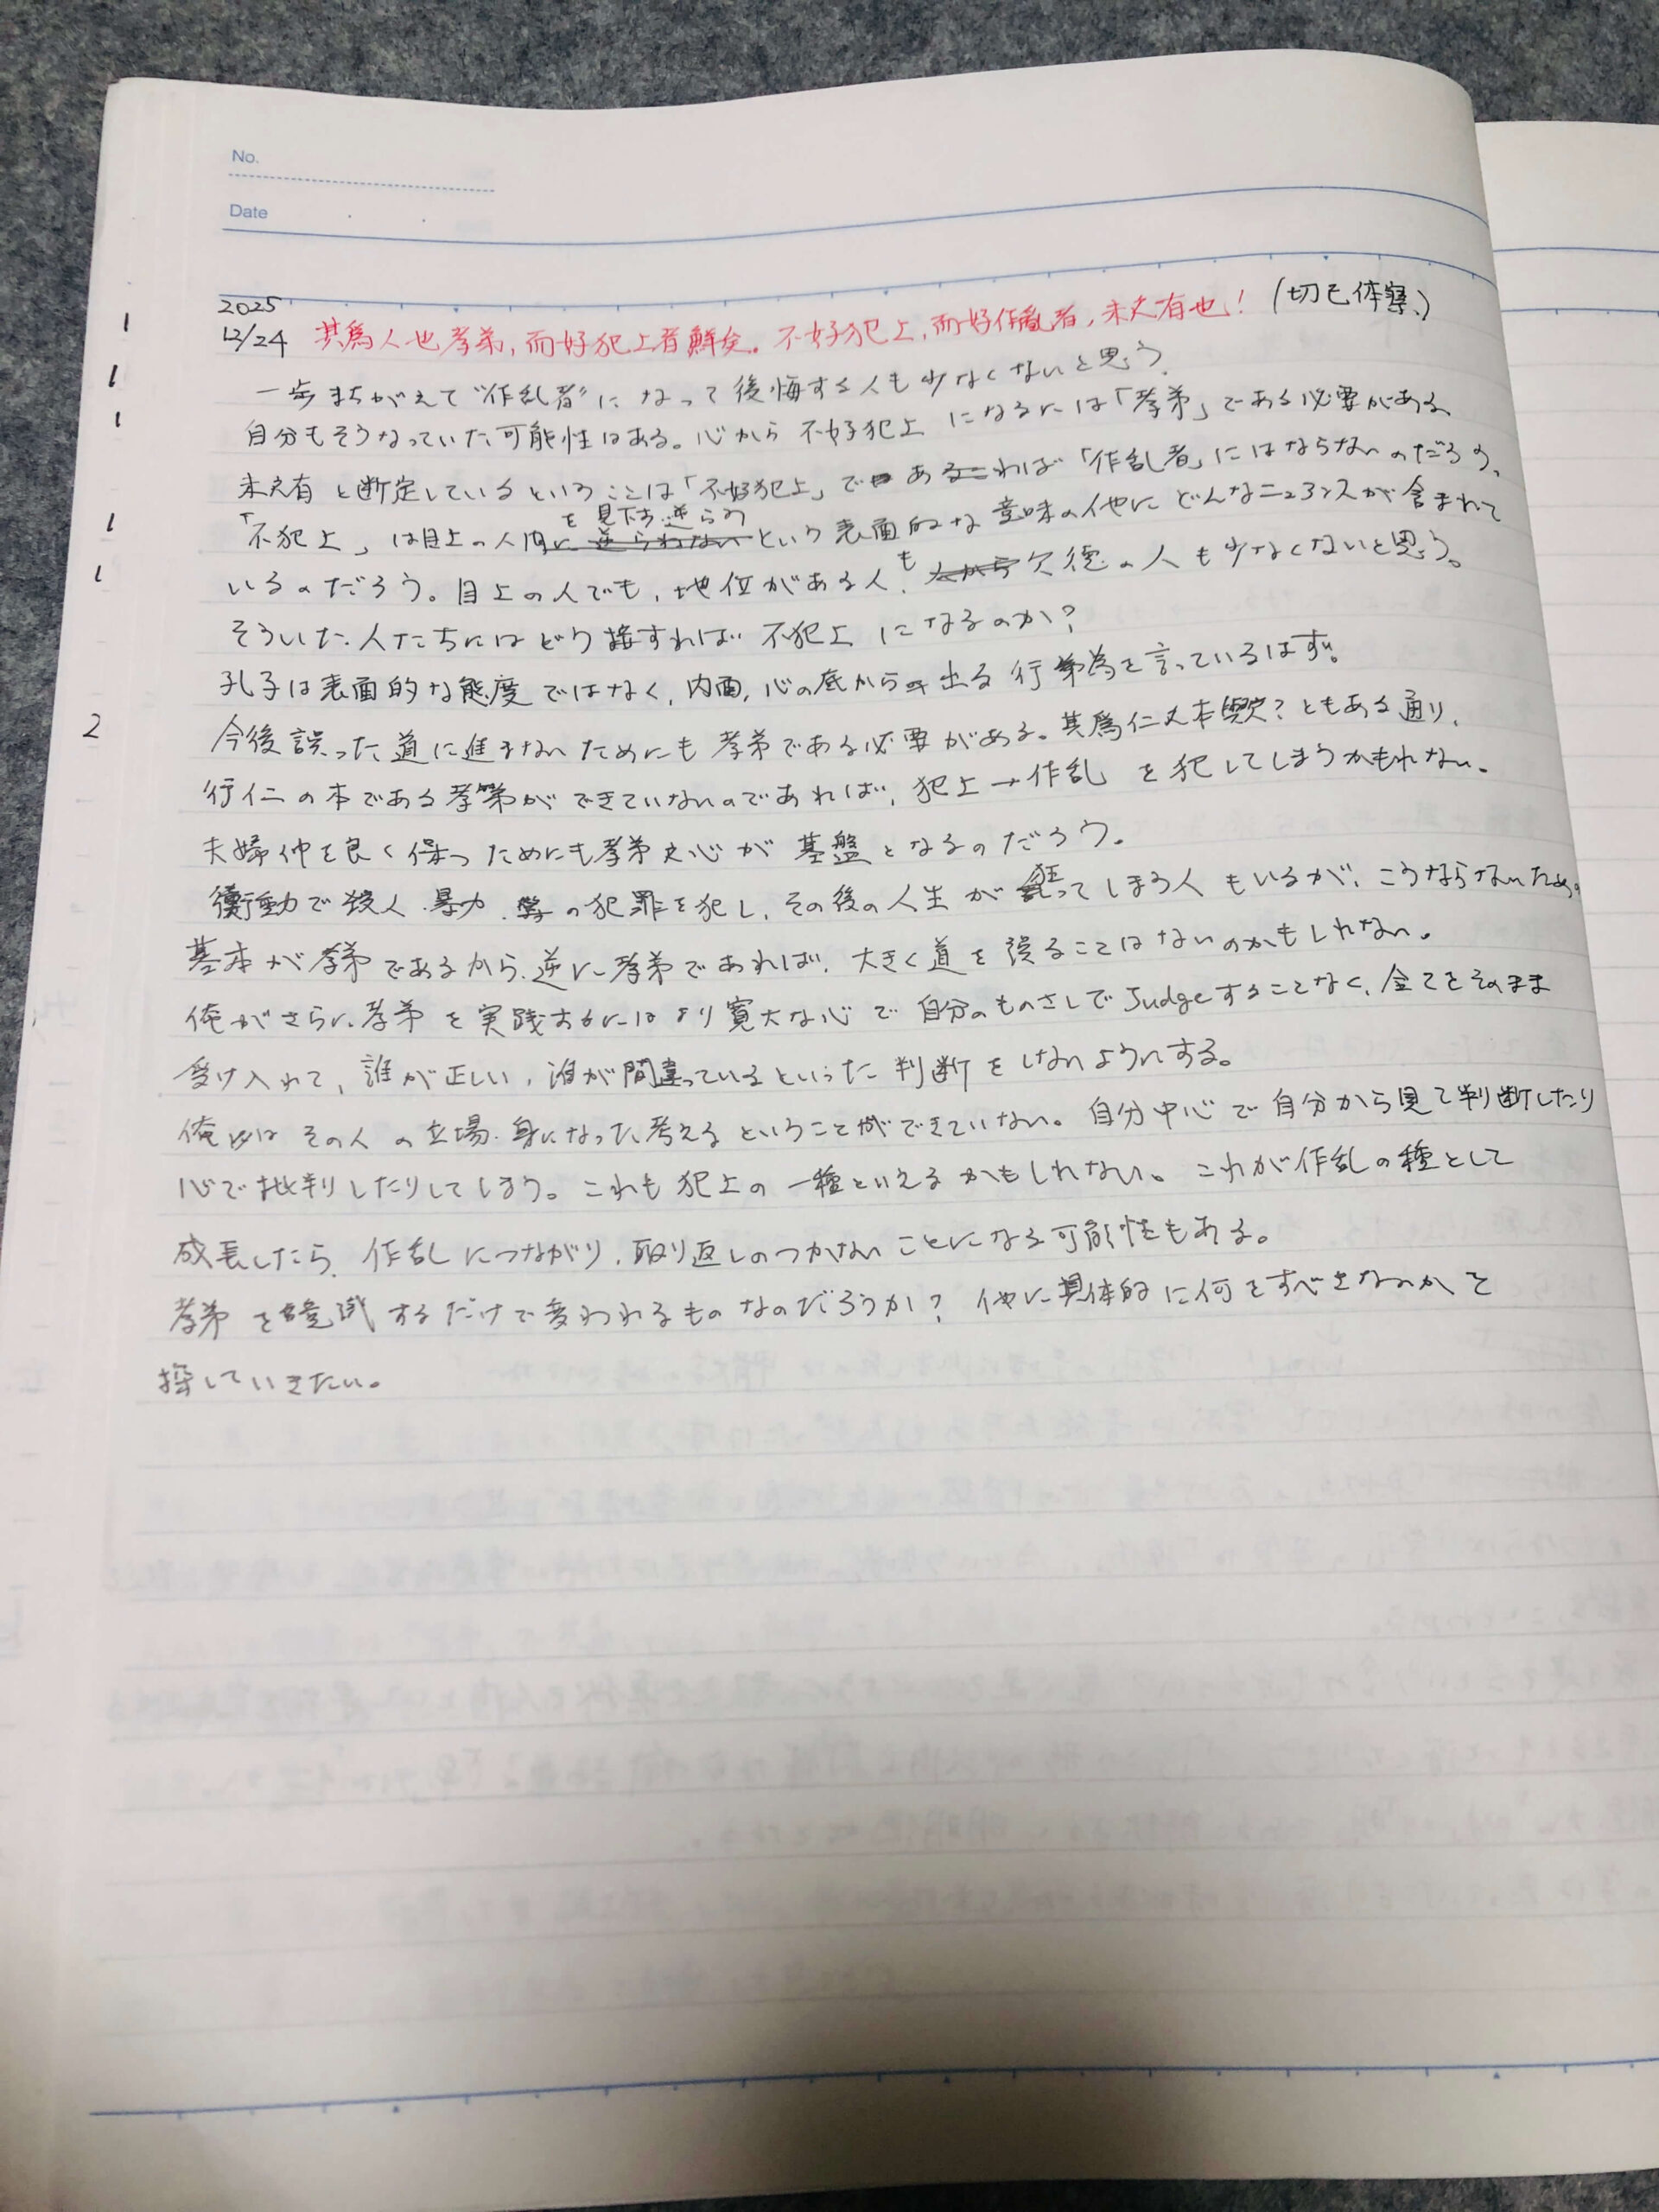 No.
Date
2025
12/24 其為人也孝弟，而好犯上者鮮矣。不好犯上，而好作亂者，未之有也！（切己体察、）
一歩まちがえて"作乱者"になって後悔する人も少なくないと思う。
自分もそうなっていた可能性はある。心から不好犯上になるには「孝弟」である必要がある。
未之有と断定しているということは「不好犯上」であれば「作乱者」にはならないのだろう。
を見下す・逆らう
「不犯上」は目上の人間に逆らわないという表面的な意味の他にどんなニュアンスが含まれて
いるのだろう。目上の人でも、地位がある人も欠徳の人も少なくないと思う。
そういた人たちにはどう接すれば不犯上になるのか？
孔子は表面的な態度ではなく、内面、心の底から出る行為を言っているはず。
今後誤った道に進まないためにも孝弟である必要がある。其為仁之本與？ともある通り、
行仁の本である孝弟ができていないのであれば、犯上→作乱を犯してしまうかもれない。
夫婦仲を良く保つためにも孝弟之心が基盤となるのだろう。
衝動で殺人、暴力、等の犯罪を犯し、その後の人生が狂ってしまう人もいるが、こうならないための
基本が孝弟であるから、逆に孝弟であれば、大きく道を誤ることはないのかもしれない。
俺がさらに孝弟を実践するにはより寛大な心で自分のものさしでJudgeすることなく、全てをそのまま
受け入れて、誰が正しい、誰が間違っているといった判断をしないようにする。
俺はその人の立場・身になった考えるということができていない。自分中心で自分から見て判断したり
心で批判したりしてしまう。これも犯上の一種といえるかもしれない。これが作乱の種として
成長したら、作乱につながり、取り返しのつかないことになる可能性もある。
孝弟を意識するだけで変われるものなのだろうか？他に具体的に何をすべきなのかを
探していきたい。
2